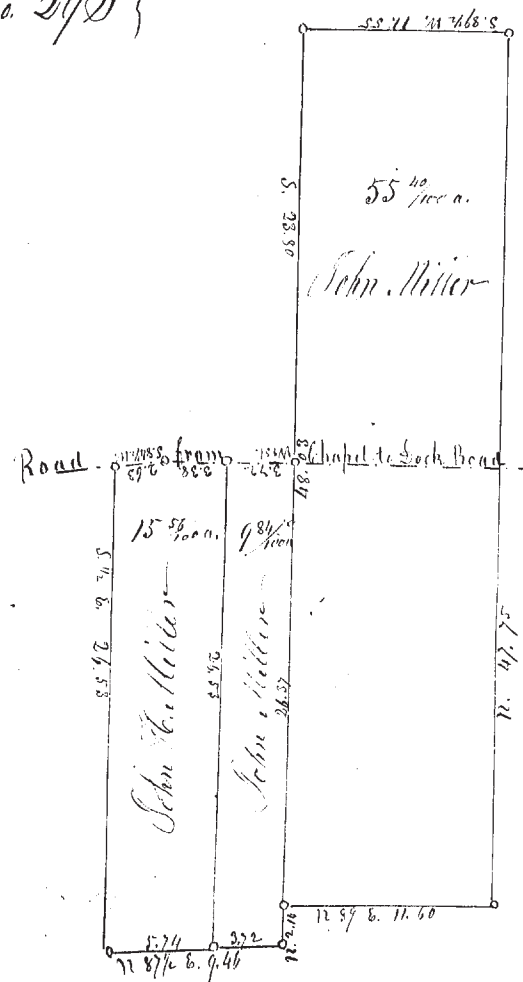 No. 298
S. 89½ W. 11.55
S. 23.80
55 40/100 a.
John Miller
Road from Chapel to Lock Road
2.63
3.38
West
3.72
15 56/100 a.
9 84/100 a
S ½ E. 26.53
John H. Miller
26.53
John Miller
26.37
N. 47.75
5.74
3.72
N 87½ E. 9.46
N. 2.14
N 89 E. 11.60